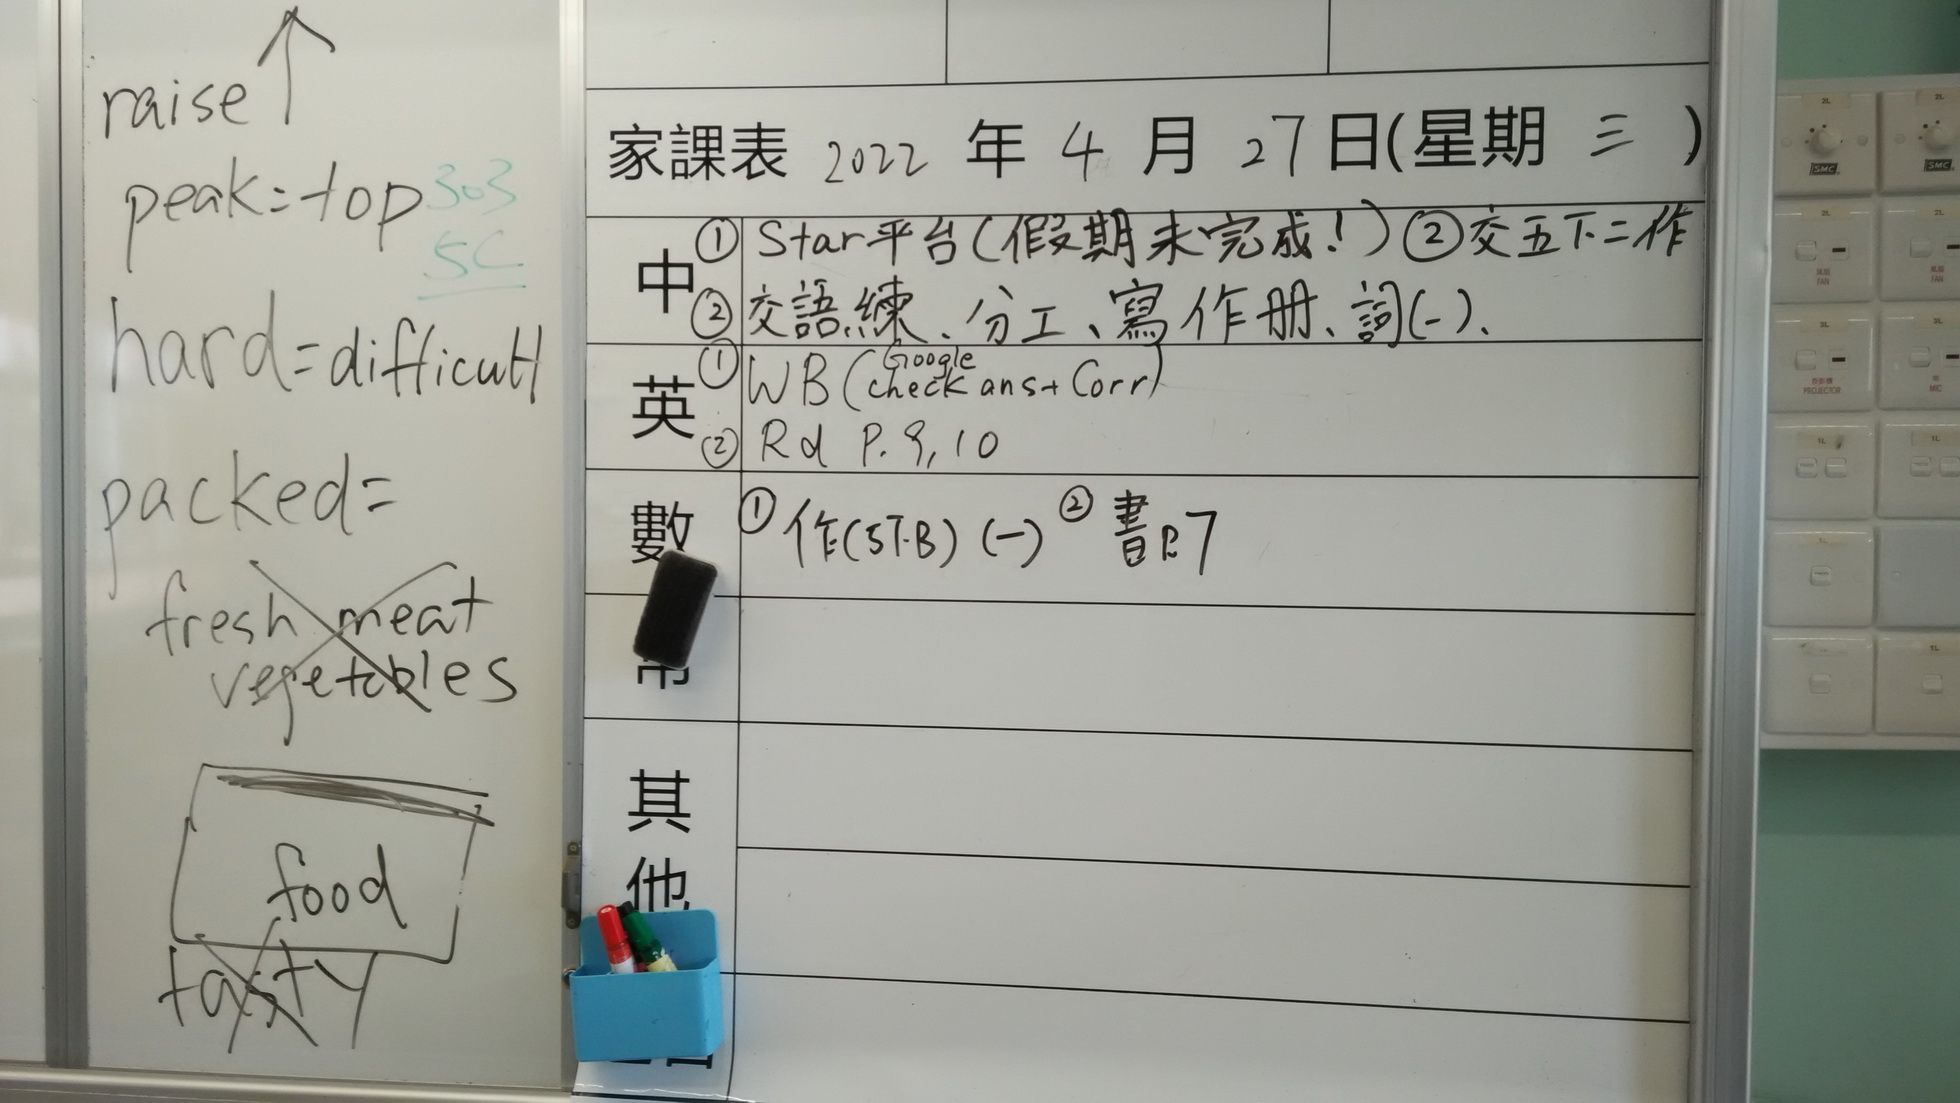 raise ↑
peak=top
303
5C
hard=difficult
packed=
fresh meat
vegetables
food
tasty
家課表 2022 年 4 月 27日(星期 三 )
中
① Star平台(假期未完成!) ②交五下二作
② 交語練、分工、寫作册、詞(一)、
英
① WB (Google check ans + Corr)
② Rd P. 9, 10
數
① 作(5下B) (一) ② 書P.7
常
其
他
SMC
SMC
2L
2L
2L
2L
FAN
FAN
3L
PROJECTOR
MIC
1L
1L
1L
1L